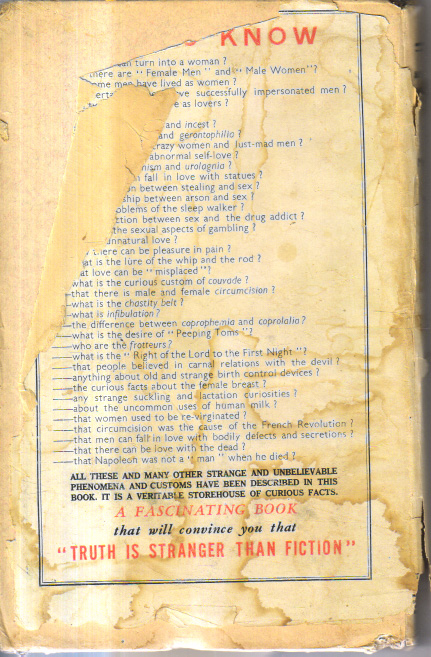 KNOW
can turn into a woman ?
there are " Female Men " and " Male Women " ?
some men have lived as women ?
successfully impersonated men ?
as lovers ?
and incest ?
and gerontophilia ?
crazy women and lust-mad men ?
abnormal self-love ?
and urolagnia ?
fall in love with statues ?
between stealing and sex ?
ship between arson and sex ?
problems of the sleep walker ?
between sex and the drug addict ?
the sexual aspects of gambling ?
unnatural love ?
there can be pleasure in pain ?
what is the lure of the whip and the rod ?
that love can be " misplaced " ?
what is the curious custom of couvade ?
—that there is male and female circumcision ?
—what is the chastity belt ?
—what is infibulation ?
—the difference between coprophemia and coprolalia ?
—what is the desire of " Peeping Toms " ?
—who are the frotteurs ?
—what is the " Right of the Lord to the First Night " ?
—that people believed in carnal relations with the devil ?
—anything about old and strange birth control devices ?
—the curious facts about the female breast ?
—any strange suckling and lactation curiosities ?
—about the uncommon uses of human milk ?
—that women used to be re-virginated ?
—that circumcision was the cause of the French Revolution ?
—that men can fall in love with bodily defects and secretions ?
—that there can be love with the dead ?
—that Napoleon was not a " man " when he died ?
ALL THESE AND MANY OTHER STRANGE AND UNBELIEVABLE
PHENOMENA AND CUSTOMS HAVE BEEN DESCRIBED IN THIS
BOOK. IT IS A VERITABLE STOREHOUSE OF CURIOUS FACTS.
A FASCINATING BOOK
that will convince you that
" TRUTH IS STRANGER THAN FICTION "